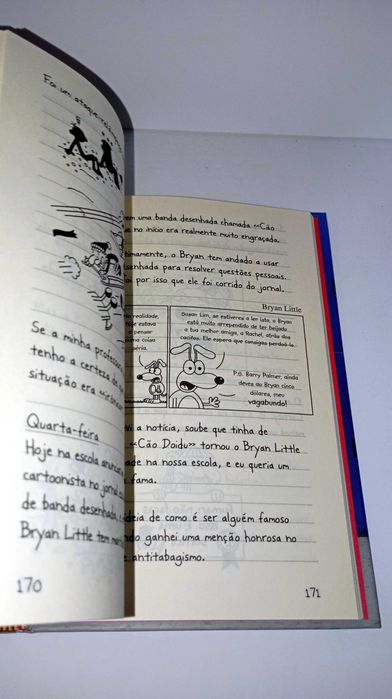 Foi um ataque
Se a minha professora
tenho a certeza de
situação era
Quarta-feira
Hoje na escola
cartoonista no jornal
de banda desenhada,
Bryan Little tem
170
tem uma banda desenhada chamada «Cão
e no início era realmente muito engraçada.
timamente, o Bryan tem andado a usar
senhada para resolver questões pessoais.
foi por isso que ele foi corrido do jornal.
Bryan Little
realidade,
estava
a pensar
numa coisa
séria.
Susan Lim, se estiveres a ler isto, o Bryan
está muito arrependido de ter beijado
a tua melhor amiga, a Rachel, atrás dos
cacifos. Ele espera que consigas perdoá-lo.
P.S. Barry Palmer, ainda
deves ao Bryan cinco
dólares, meu
vagabundo!
vi a notícia, soube que tinha de
«Cão Doidu» tornou o Bryan Little
dade na nossa escola, e eu queria um
fama.
deia de como é ser alguém famoso
ndo ganhei uma menção honrosa no
e antitabagismo.
171